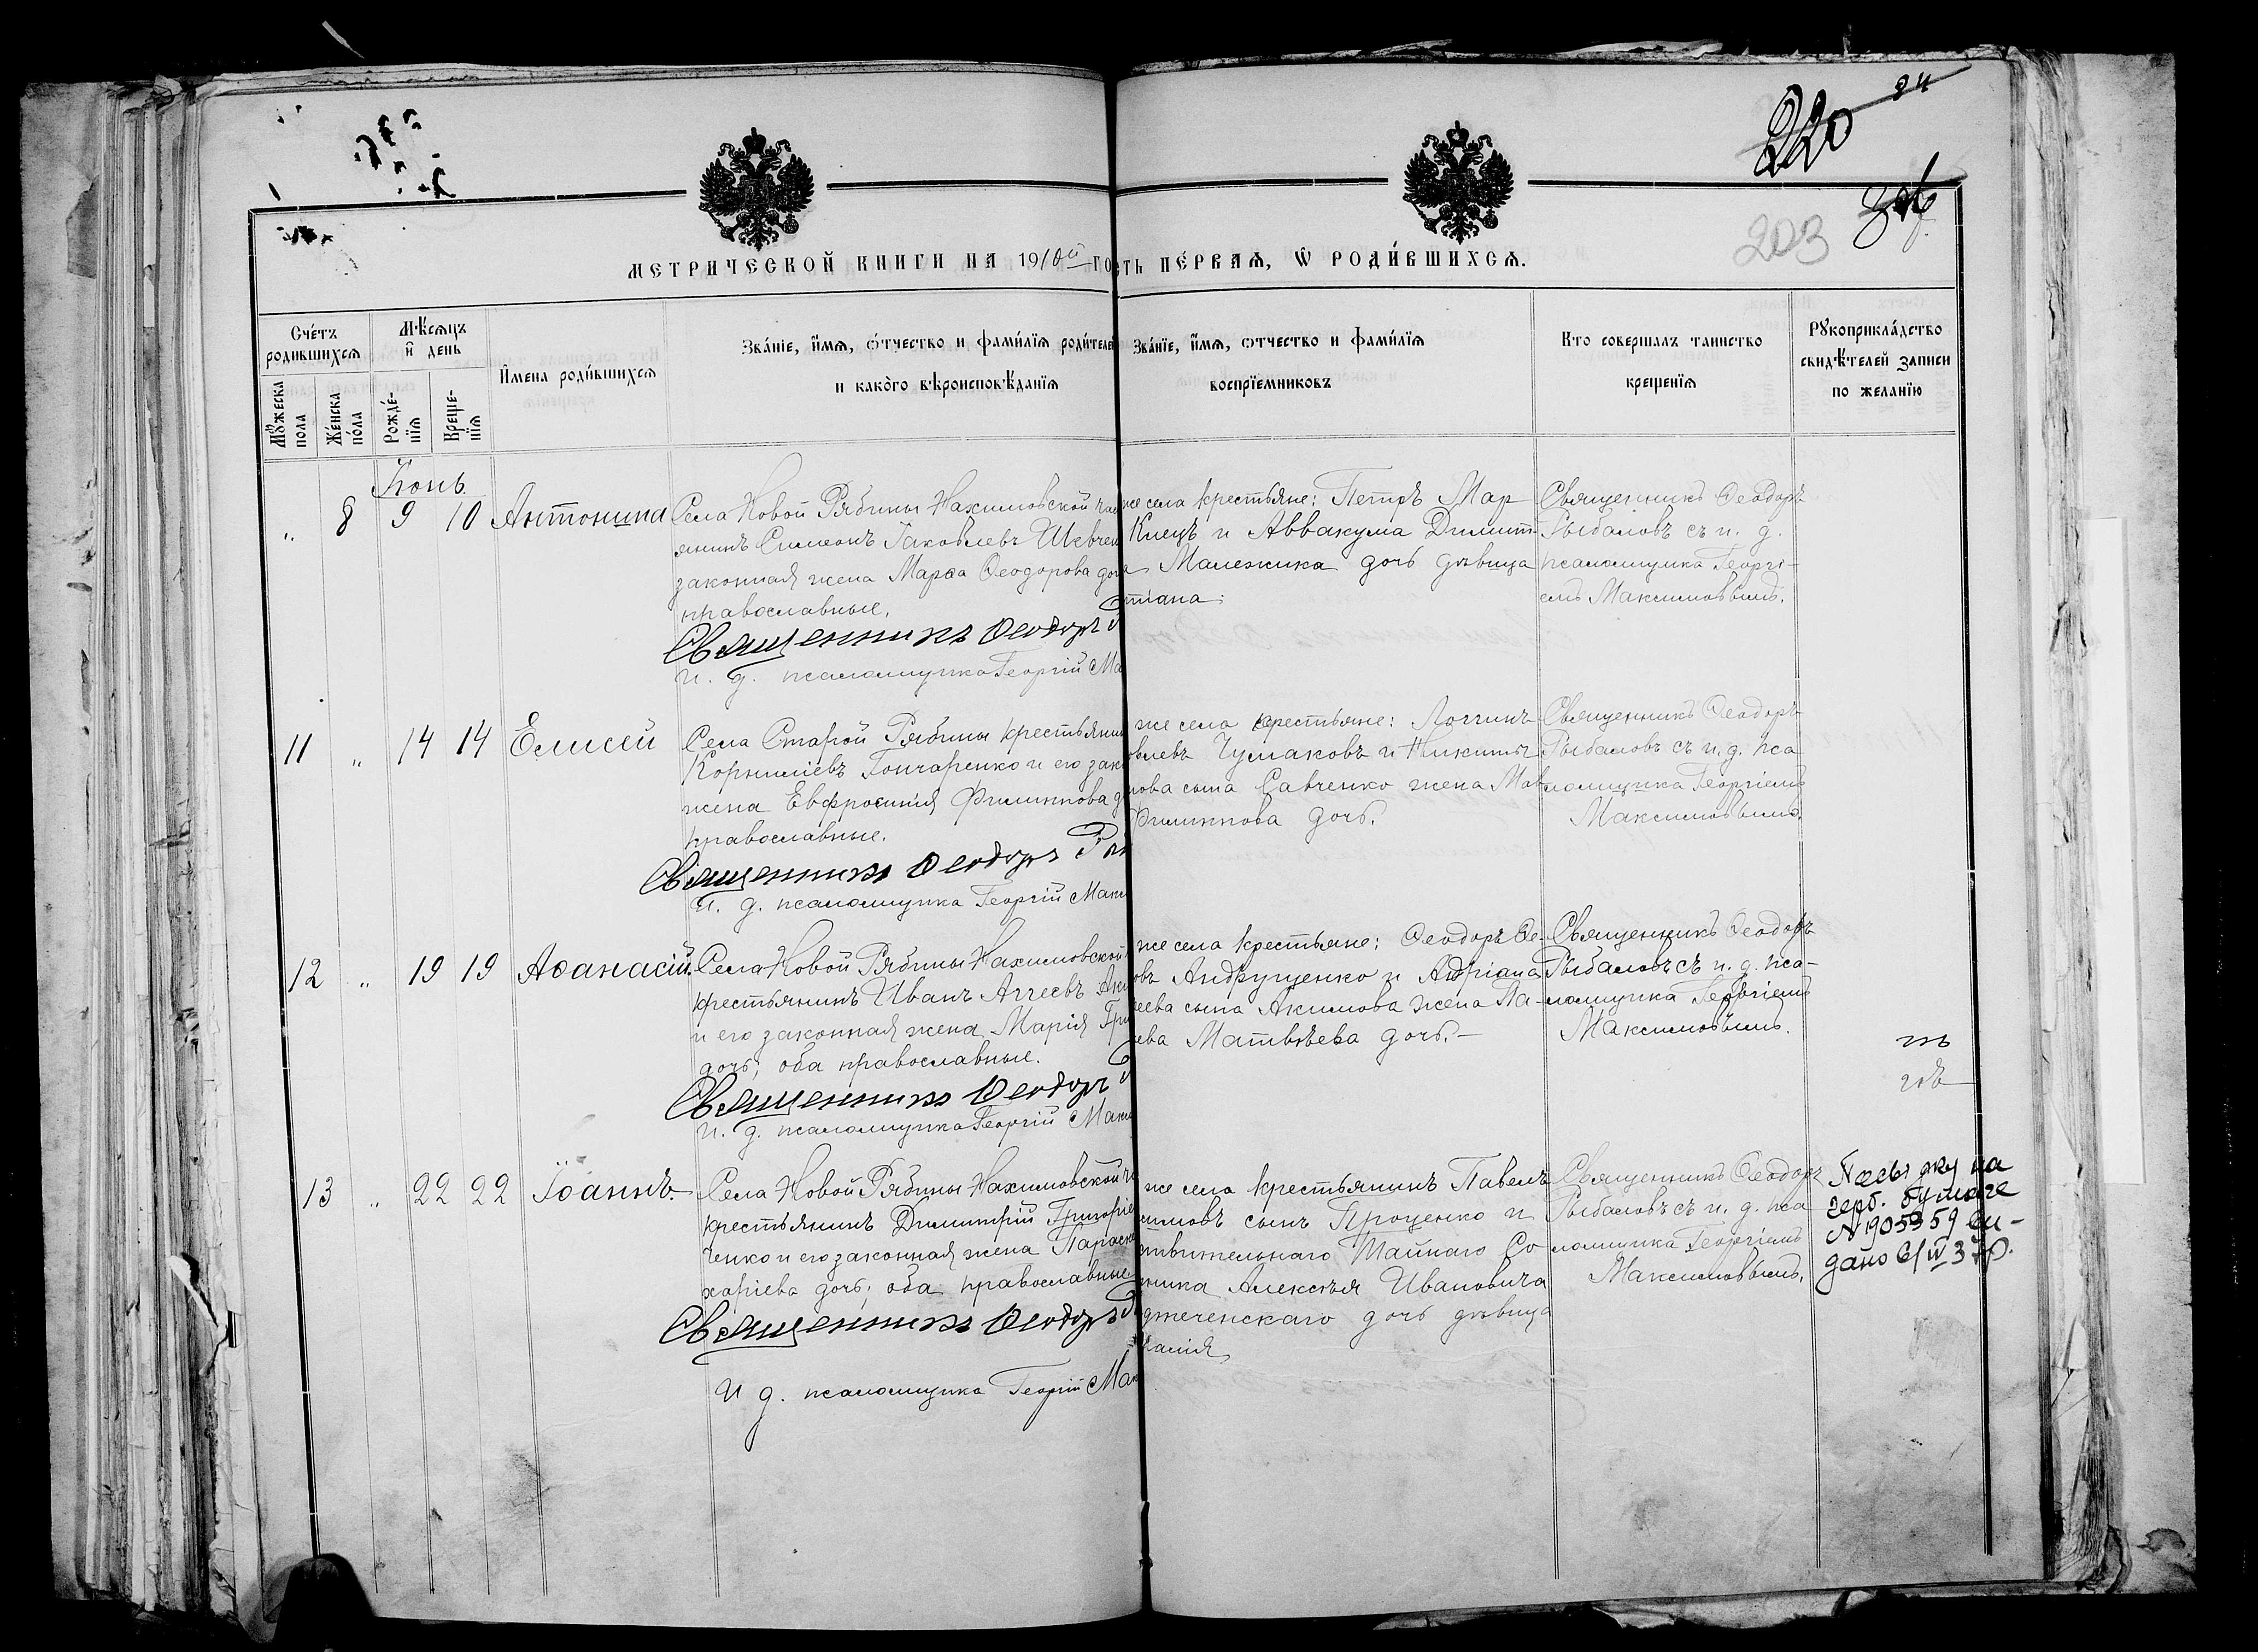 220 24
203
МЕТРИЧЕСКОЙ КНИГИ НА 1910й ГО
СТЬ ПЕ́РВАѦ, Ѿ РОДИ́ВШИХСѦ.
Сче́тъ родившихсѧ
Мꙋ́жеска пола
Же́нска по́ла
Мѣ́сѧцъ и҆ день
Рожде́-нїѧ
Креще-нїѧ
И҆мена роди́вшихсѧ
Зва́нїе, и҆́мѧ, о҆́тчество и фами́лїѧ роди́телей
и како́го вѣроисповѣ́данїѧ
Зва́нїе, и҆́мѧ, ѻтчество и фами́лїѧ
воспрїемниковъ
Кто совершалъ таинство
крещенїѧ
Рꙋкоприкла́дство
свидѣ́телей записи
по желанїю
Іюнь
„ 8 9 10 Антонина
Села Новой Рябины Нахимовской час
янинъ Симеонъ Іаковлевъ Шевчен
законная жена Марѳа Ѳеодорова доч
православные.
Священникъ Ѳеодоръ
И. д. псаломщика Георгій Ма
же села крестьяне: Петръ Мар
Кнецъ и Аввакума Димит-
Малежика дочь дѣвица
тіана.
Священникъ Ѳеодоръ
Рыбаловъ съ и. д.
псаломщика Георгі-
емъ Максимовымъ.
11 „ 14 14 Елисей
Села Старой Рябины крестьянин
Корниліевъ Гончаренко и его зак
жена Евфросинія Филиппова д
православные.
Священникъ Ѳеодоръ Ры
И. д. псаломщика Георгій Макс
же села крестьяне: Логгинъ
овлевъ Чумаковъ и Никиты
нова сына Савченко жена Мав
Филиппова дочь.
Священникъ Ѳеодоръ
Рыбаловъ съ и. д. пса
ломщика Георгіемъ
Максимовымъ.
12 „ 19 19 Аѳанасій
Села Новой Рябины Нахимовской
крестьянинъ Иванъ Аггеевъ Аки
и его законная жена Марія Гри
дочь; оба православные.
Священникъ Ѳеодоръ
И. д. псаломщика Георгій Макс
же села крестьяне: Ѳеодоръ Ѳе-
овъ Андрущенко и Адріана
геева сына Акимова жена Па-
ева Матвѣева дочь.
Священникъ Ѳеодоръ
Рыбаловъ съ и. д. пса-
ломщика Георгіемъ
Максимовымъ.
13 „ 22 22 Іоаннъ
Села Новой Рябины Нахимовской ч
крестьянинъ Димитрій Григоріе
ченко и его законная жена Параске
харіева дочь; оба православные
Священникъ Ѳеодоръ
И д. псаломщика Георгій Мак
же села крестьянинъ Павелъ
симовъ сынъ Проценко и
ствительнаго Тайнаго Со
тника Алексѣя Ивановича
джеченскаго дочь дѣвица
Священникъ Ѳеодоръ
Рыбаловъ съ и. д. пса
ломщика Георгіемъ
Максимовымъ.
на
герб. бумаге
N 1905359 вы-
дано